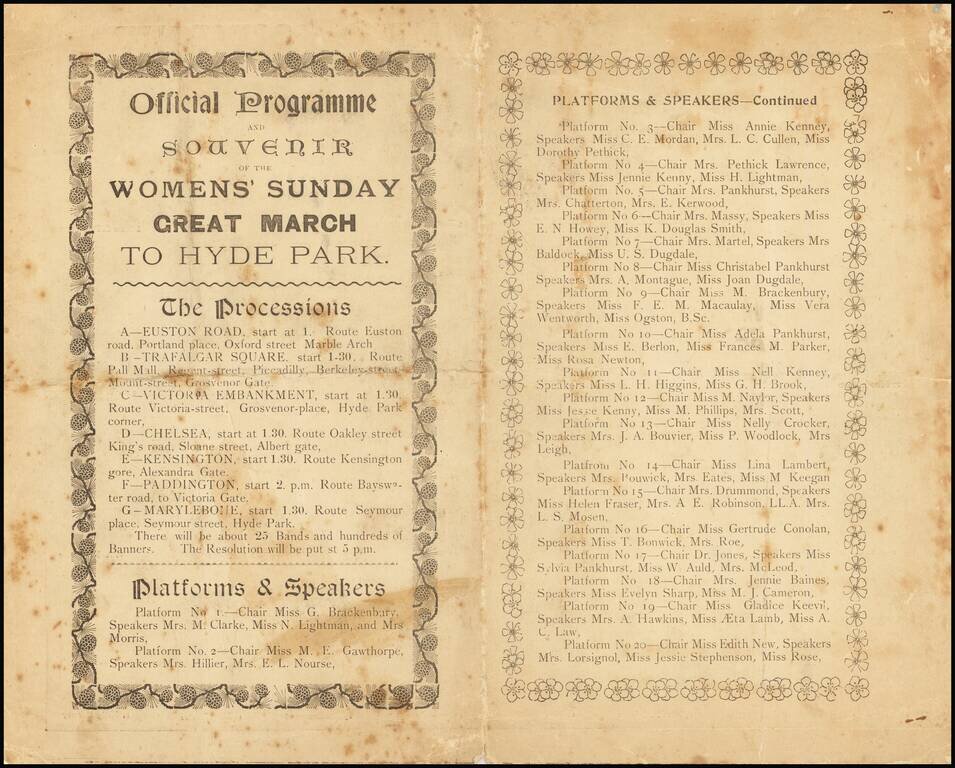 Official Programme
AND
SOUVENIR
OF THE
WOMENS' SUNDAY
GREAT MARCH
TO HYDE PARK.
The Processions
A—EUSTON ROAD, start at 1. Route Euston
road, Portland place, Oxford street Marble Arch
B—TRAFALGAR SQUARE. start 1-30. Route
Pall Mall, Regent-street, Piccadilly, Berkeley-street,
Mount-street, Grosvenor Gate.
C—VICTORIA EMBANKMENT, start at 1.30.
Route Victoria-street, Grosvenor-place, Hyde Park
corner,
D—CHELSEA, start at 1.30. Route Oakley street
King's road, Sloane street, Albert gate,
E—KENSINGTON, start 1.30. Route Kensington
gore, Alexandra Gate.
F—PADDINGTON, start 2. p.m. Route Bayswa-
ter road, to Victoria Gate.
G—MARYLEBONE, start 1.30. Route Seymour
place, Seymour street, Hyde Park.
There will be about 25 Bands and hundreds of
Banners. The Resolution will be put st 5 p.m.
Platforms & Speakers
Platform No 1.—Chair Miss G. Brackenbury,
Speakers Mrs. M. Clarke, Miss N. Lightman, and Mrs
Morris,
Platform No. 2—Chair Miss M. E. Gawthorpe,
Speakers Mrs. Hillier, Mrs. E. L. Nourse,
PLATFORMS & SPEAKERS—Continued
Platform No. 3—Chair Miss Annie Kenney,
Speakers Miss C. E. Mordan, Mrs. L. C. Cullen, Miss
Dorothy Pethick,
Platform No 4—Chair Mrs. Pethick Lawrence,
Speakers Miss Jennie Kenny, Miss H. Lightman,
Platform No. 5—Chair Mrs. Pankhurst, Speakers
Mrs. Chatterton, Mrs. E. Kerwood,
Platform No 6—Chair Mrs. Massy, Speakers Miss
E. N Howey, Miss K. Douglas Smith,
Platform No 7—Chair Mrs. Martel, Speakers Mrs
Baldock, Miss U. S. Dugdale,
Platform No 8—Chair Miss Christabel Pankhurst
Speakers Mrs. A, Montague, Miss Joan Dugdale,
Platform No 9—Chair Miss M. Brackenbury,
Speakers Miss F. E. M. Macaulay, Miss Vera
Wentworth, Miss Ogston, B.Sc.
Platform No 10—Chair Miss Adela Pankhurst,
Speakers Miss E. Berlon, Miss Frances M. Parker,
Miss Rosa Newton,
Platform No 11—Chair Miss Nell Kenney,
Speakers Miss L. H. Higgins, Miss G. H. Brook,
Platform No 12—Chair Miss M. Naylor, Speakers
Miss Jessie Kenny, Miss M. Phillips, Mrs. Scott,
Platform No 13—Chair Miss Nelly Crocker,
Speakers Mrs. J. A. Bouvier, Miss P. Woodlock, Mrs
Leigh,
Platfrom No 14—Chair Miss Lina Lambert,
Speakers Mrs. Bouwick, Mrs. Eates, Miss M Keegan
Platform No 15—Chair Mrs. Drummond, Speakers
Miss Helen Fraser, Mrs. A E. Robinson, LL.A. Mrs.
L. S. Mosen,
Platform No 16—Chair Miss Gertrude Conolan,
Speakers Miss T. Bonwick, Mrs. Roe,
Platform No 17—Chair Dr. Jones, Speakers Miss
Sylvia Pankhurst, Miss W. Auld, Mrs. McLeod,
Platform No 18—Chair Mrs. Jennie Baines,
Speakers Miss Evelyn Sharp, Miss M. J. Cameron,
Platform No 19—Chair Miss Gladice Keevil,
Speakers Mrs. A. Hawkins, Miss Æta Lamb, Miss A.
C. Law,
Platform No 20—Chair Miss Edith New, Speakers
Mrs. Lorsignol, Miss Jessie Stephenson, Miss Rose,